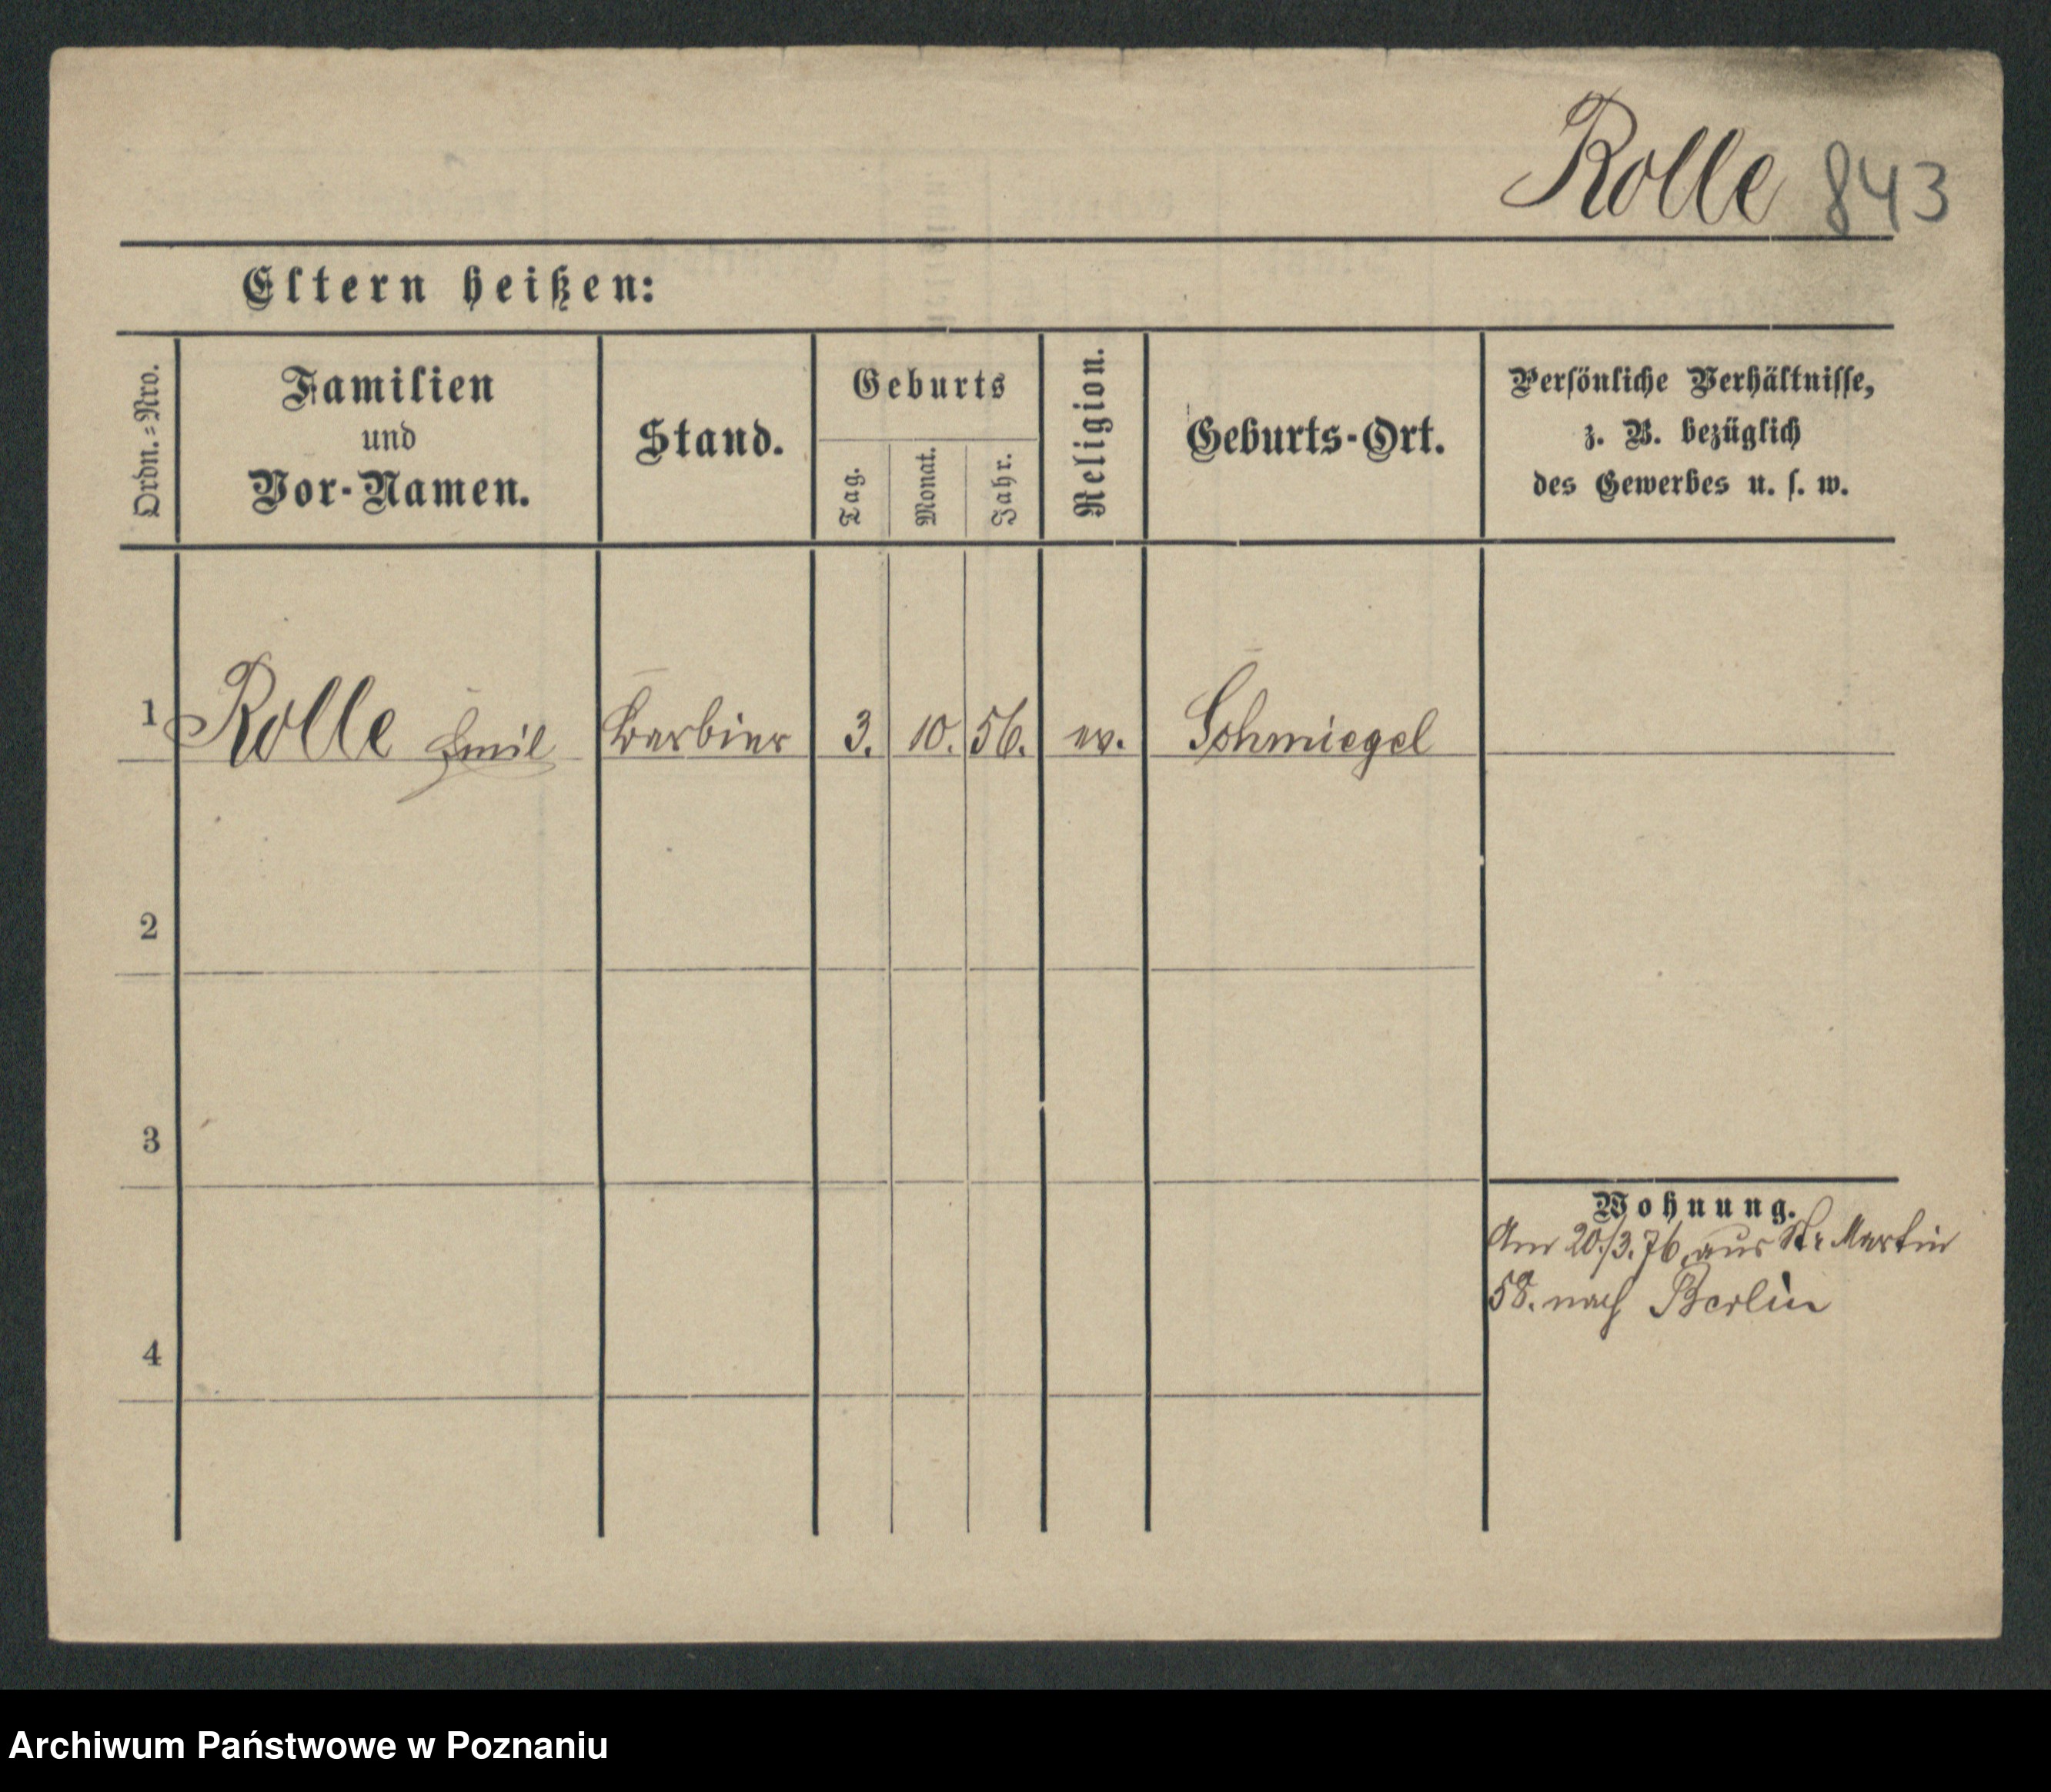 Rolle 843
Eltern heißen:
Ordn.=Nro.
Familien
und
Vor-Namen.
Stand.
Geburts
Tag.
Monat.
Jahr.
Religion.
Geburts-Ort.
Persönliche Verhältnisse,
z. B. bezüglich
des Gewerbes u. s. w.
1 Rolle Emil Barbier 3. 10. 56. ev. Schmiegel
2
3
Wohnung.
Am 20./3. 76. aus St. Martin
58. nach Berlin
4
Archiwum Państwowe w Poznaniu